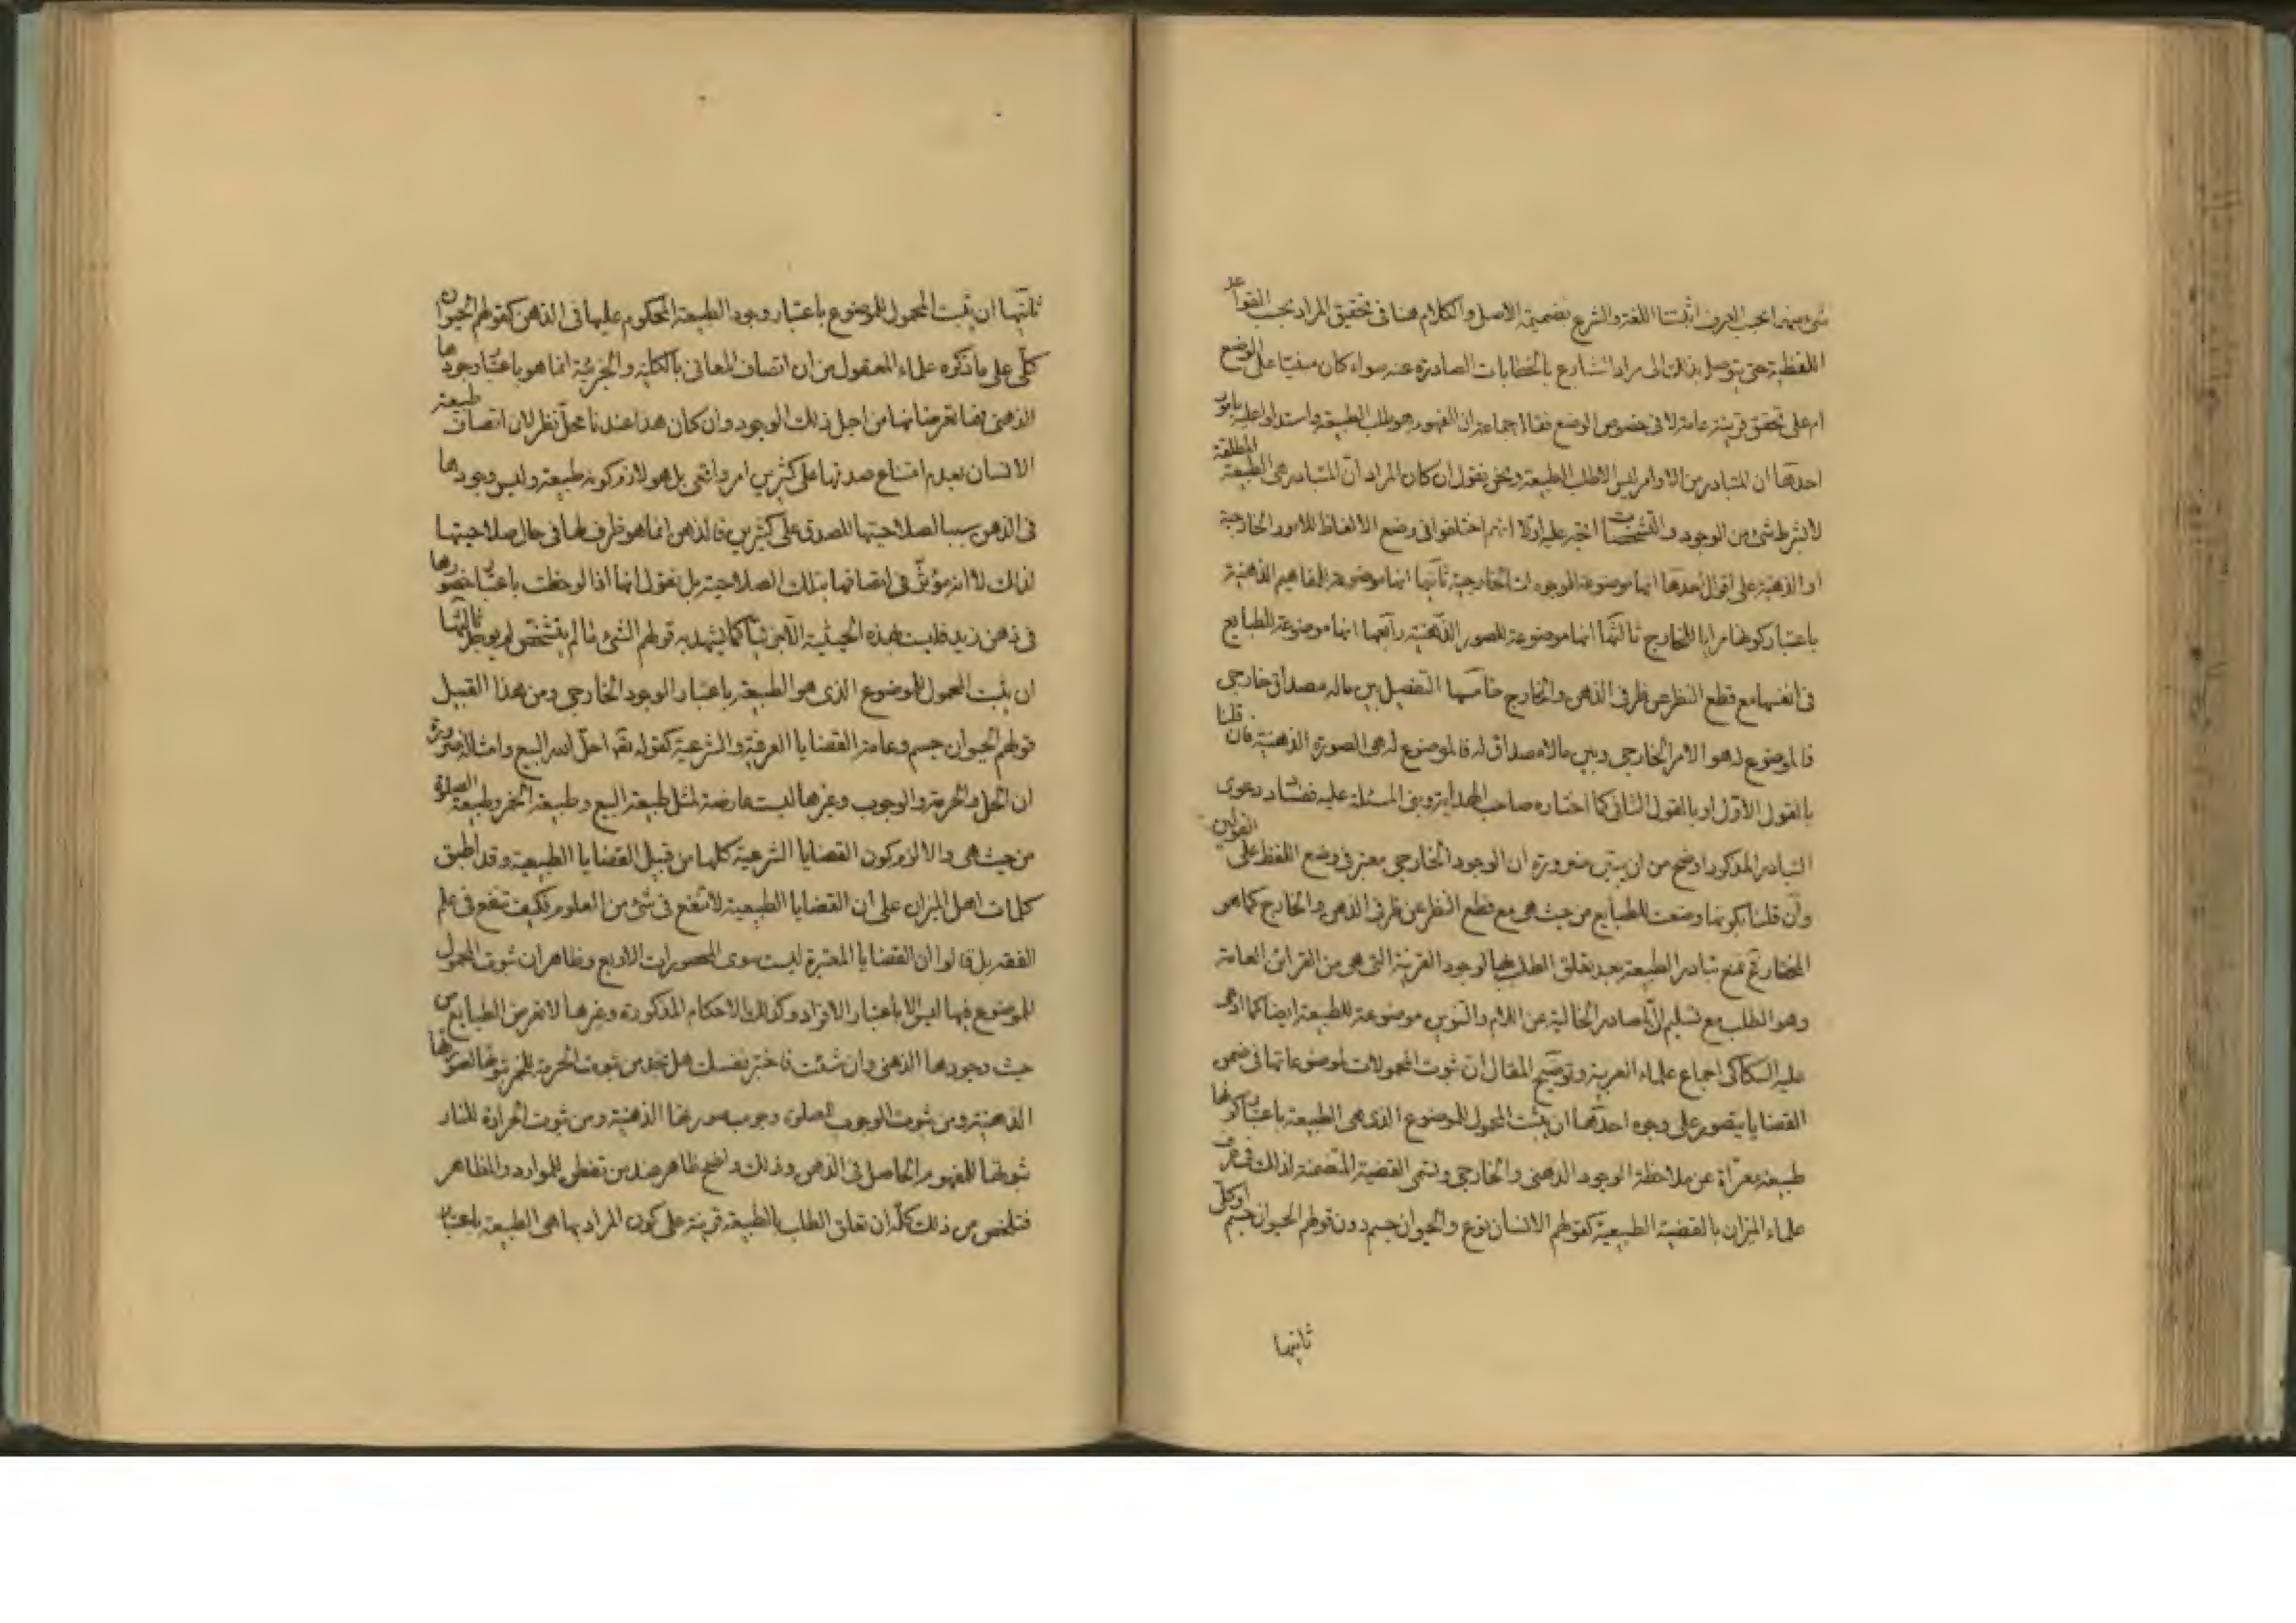 شئ منهما بحسب العرف اثبتنا اللغة والشرع بضميمة الاصل والكلام هنا فى تحقيق المراد بحسب القواعد
اللفظية حتى يتوصل بذلك الى مراد الشارع بالخطابات الصادرة عنه سواء كان مبنيا على الوضع
ام على تحقق قرينة عامة لا فى خصوص الوضع فقال جماعة ان المفهوم هو طلب الطبيعة واستدلوا عليه بامور
احدها ان المتبادر من الاوامر ليس الا طلب الطبيعة ونحن نقول ان كان المراد ان المتبادر هى الطبيعة المطلقة
لا بشرط شئ من الوجود والتشخصات اتجه عليه اولا انهم اختلفوا فى وضع الالفاظ للامور الخارجية
او الذهنية على اقوال احدها انها موضوعة للموجودات الخارجية ثانيها انها موضوعة للمفاهيم الذهنية
باعتبار كونها مرايا للخارج ثالثها انها موضوعة للصور الذهنية رابعها انها موضوعة للطبايع
فى انفسها مع قطع النظر عن ظرفى الذهن والخارج خامسها التفصيل بين ماله مصداق خارجى
فالموضوع له هو الامر الخارجى وبين مالا مصداق له فالموضوع له هى الصورة الذهنية فان قلنا
بالقول الاول او بالقول الثانى كما اختاره صاحب الهداية وبنى المسئلة عليه ففساد دعوى
التبادر المذكور اوضح من ان يبين ضرورة ان الوجود الخارجى معتبر فى وضع اللفظ على القولين
وان قلنا بكونها وضعت للطبايع من حيث هى مع قطع النظر عن ظرفى الذهن والخارج كما هو
المختار نمنع تبادر الطبيعة بعد تعلق الطلب بها لوجود القرينة التى هى من القرائن العامة
وهو الطلب مع تسليم ان المصادر الخالية عن اللام والتنوين موضوعة للطبيعة ايضا كما ادعى
عليه السكاكى اجماع علماء العربية وتوضيح المقال ان ثبوت المحمولات لموضوعاتها فى ضمن
القضايا يتصور على وجوه احدها ان يثبت المحمول للموضوع الذى هى الطبيعة باعتبار كونها
طبيعة معراة عن ملاحظة الوجود الذهنى والخارجى وتسمى القضية المتضمنة لذلك فى عرف
علماء الميزان بالقضية الطبيعية كقولهم الانسان نوع والحيوان جسم دون قولهم الحيوان جسم او كلى
ثانيها
ثانيها ان يثبت المحمول للموضوع باعتبار وجود الطبيعة المحكوم عليها فى الذهن كقولهم الحيوان
كلى على ما ذكره علماء المعقول من ان اتصاف المعانى بالكلية والجزئية انما هو باعتبار وجودها
الذهنى بتعرضانها من اجل ذلك الوجود وان كان هذا عندنا محل نظر لان اتصاف طبيعة
الانسان بعدم امتناع صدقها على كثيرين امر واقعى بل هو لازم كونه طبيعة وليس وجودها
فى الذهن سببا لصلاحيتها للصدق على كثيرين فالذهن انما هو ظرف لها فى حال صلاحيتها
لذلك لا انه مؤثر فى اتصافها بتلك الصلاحية بل نقول انها اذا لوحظت باعتبار حضورها
فى ذهن زيد فليست بهذه الحيثية الا جزئيا كما يشهد به قولهم الشئ ما لم يتشخص لم يوجد ثالثها
ان يثبت المحمول للموضوع الذى هو الطبيعة باعتبار الوجود الخارجى ومن هذا القبيل
قولهم الحيوان جسم وعامة القضايا العرفية والشرعية كقوله تعالى احل الله البيع وامثاله ضرورة
ان الحل والحرمة والوجوب وغيرها ليست عارضة لمثل طبيعة البيع وطبيعة الخمر وطبيعة الصلوة
من حيث هى والا لزم كون القضايا الشرعية كلها من قبيل القضايا الطبيعية وقد اطبق
كلمات اهل الميزان على ان القضايا الطبيعية لا تنفع فى شئ من العلوم فكيف تنفع فى علم
الفقه بل قالوا ان القضايا المعتبرة ليست سوى المحصورات الاربع وظاهر ان ثبوت المحمول
للموضوع فيها ليس الا باعتبار الافراد وكذلك الاحكام المذكورة وغيرها لا تعرض الطبايع من
حيث وجودها الذهنى وان شئت فاختبر نفسك هل تجد من ثبوت الحرمة للخمر ثبوتها لصورتها
الذهنية ومن ثبوت الوجوب للصلوة وجوب صورتها الذهنية ومن ثبوت الحرارة للنار
ثبوتها للمفهوم الحاصل فى الذهن وذلك واضح ظاهر عند من تفطن للموارد والمظاهر
فتلخص من ذلك كله ان تعلق الطلب بالطبيعة قرينة على كون المراد بها هى الطبيعة باعتبار